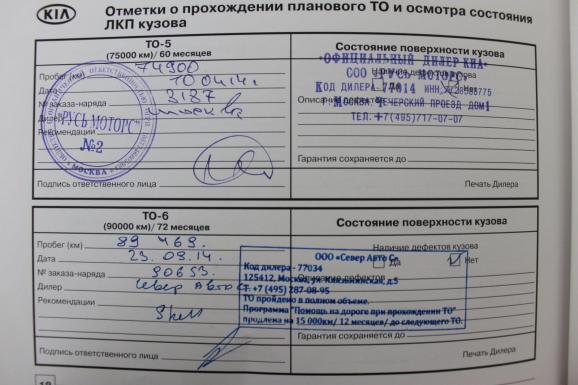 KIA
Отметки о прохождении планового ТО и осмотра состояния
ЛКП кузова
ТО-5
(75000 км)/ 60 месяцев
Состояние поверхности кузова
Пробег (км) 74900
Дата 10 04 14 г
№ заказа-наряда 3187
Дилер Москва
Рекомендации
"РУСЬ МОТОРС"
№2
МОСКВА
Подпись ответственного лица
ОФИЦИАЛЬНЫЙ ДИЛЕР КИА
Наличие дефектов кузова
ООО "РУСЬ МОТОРС"
Нет
КОД ДИЛЕРА 77014 ИНН
Описание дефектов
МОСКВА, ПЕЧЕРИЙ ПРОЕЗД ДОМ1
ТЕЛ.+7(495)717-07-07
Гарантия сохраняется до
Печать Дилера
ТО-6
(90000 км)/ 72 месяцев
Состояние поверхности кузова
Пробег (км) 89 469.
Дата 23.09.14.
№ заказа-наряда 90653.
Дилер Север Авто
Рекомендации
Shell
Подпись ответственного лица
Наличие дефектов кузова
Да Нет
Описание дефектов
ООО «Север Авто С»
Код дилера - 77034
125412, Москва, ул. д.5
т. +7 (495) 287-08-95
ТО пройдено в полном объеме.
Программа "Помощь на дороге при прохождении ТО"
продлена на 15 000км/ 12 месяцев/ до следующего ТО.
Гарантия сохраняется до
Печать Дилера